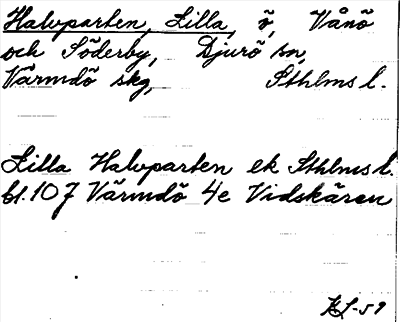 Halvparten, Lilla, ö, Vånö
och Söderby, Djurö sn,
Värmdö skg, Sthlms l.
Lilla Halvparten ek Sthlms l.
bl. 107 Värmdö 4e Vidskären
KL-59